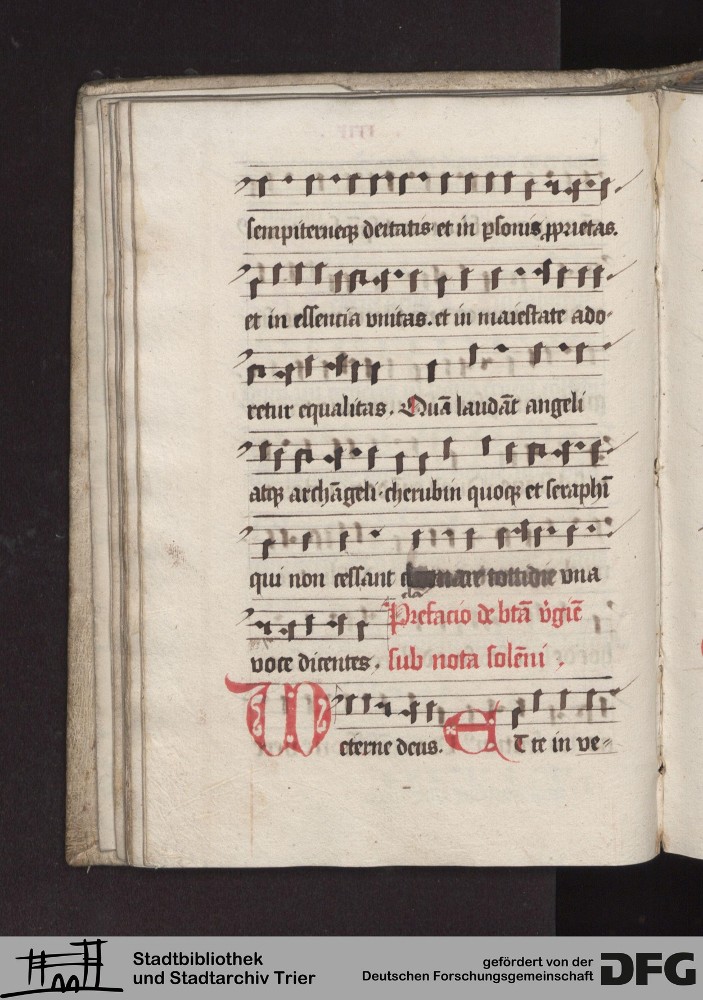 sempiterneqȝ deitatis et in ꝑsonis ꝓprietas.
et in essencia vnitas. et in maiestate ado-
retur equalitas. Quā laudāt angeli
atqȝ archāgeli. cherubin quoqȝ et seraphī
qui non cessant cottidie vna
cla
voce dicentes.
Prefacio de btā v̇giē
sub nota solēni.
eterne deus. ET te in ve-
Stadtbibliothek
und Stadtarchiv Trier
gefördert von der
Deutschen Forschungsgemeinschaft
DFG